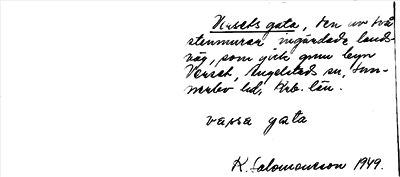 Vesets gata, den av två
stenmurar ingärdade lands-
väg, som gick genom byn
Veset, Engelstads sn, Lom-
merlev hd, Krb. län.
vassa gata
K. Salomonsson 1949.